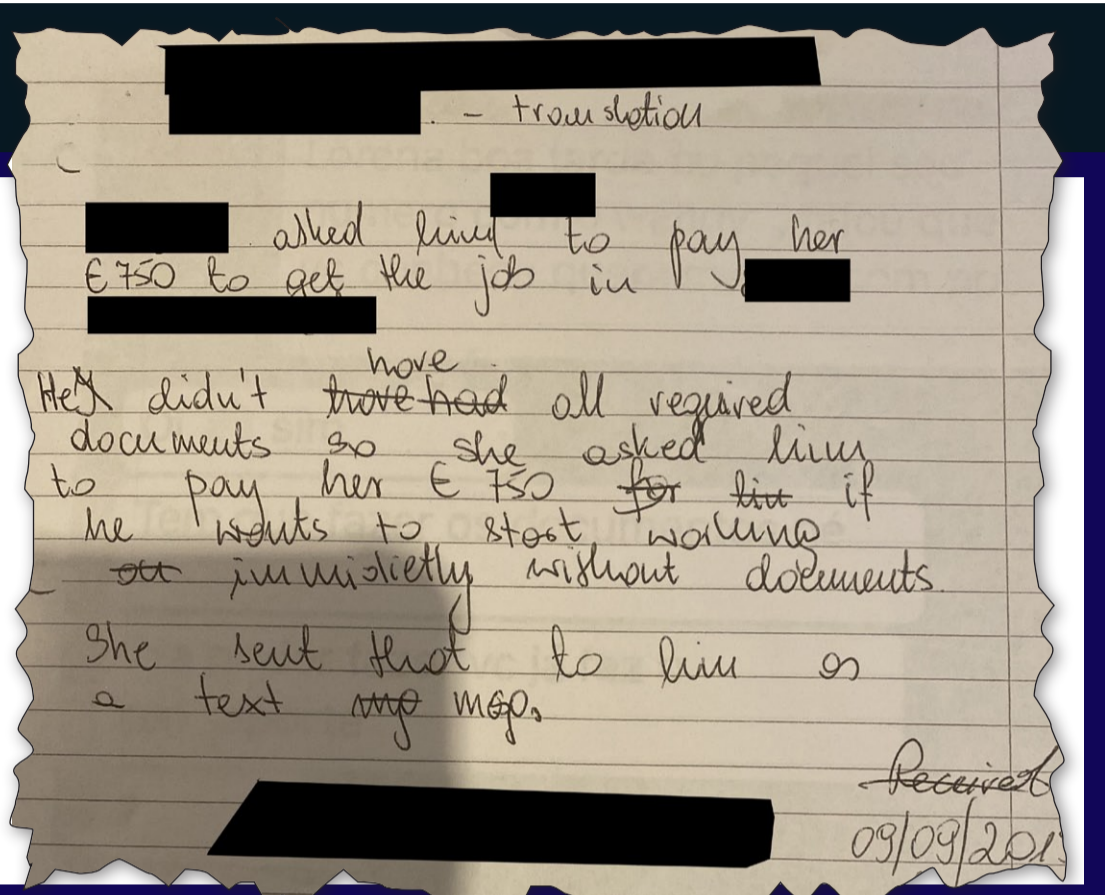 - translation
asked him to pay her
€750 to get the job in
have
He didn't have had all required
documents so she asked him
to pay her € 750 for him if
he wants to start working
immidietly without documents.
She sent that to him as
a text msg msg.
Received
09/09/201